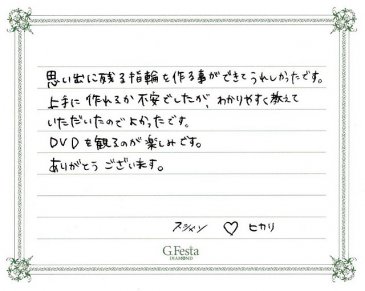 思い出に残る指輪を作る事ができてうれしかったです。
上手に作れるか不安でしたが、わかりやすく教えて
いただいたのでよかったです。
DVDを観るのが楽しみです。
ありがとうございます。
♡ ヒカリ
G.Festa
DIAMOND